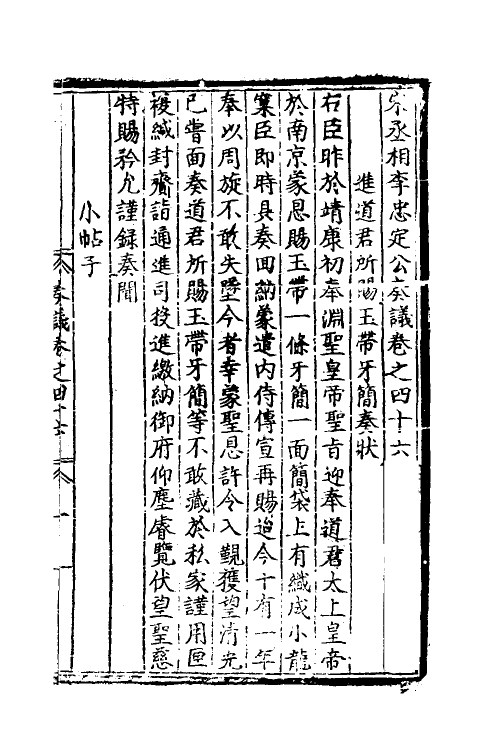 宋丞相李忠定公奏議卷之四十六
進道君所賜玉帶牙簡奏狀
右臣昨於靖康初奉淵聖皇帝聖旨迎奉道君太上皇帝
於南京蒙恩賜玉帶一條牙簡一面簡袋上有織成小龍
窠臣即時具奏回納蒙遣内侍傳宣再賜迨今十有一年
奉以周旋不敢失墜今者幸蒙聖恩許令入覲獲望清光
已嘗面奏道君所賜玉帶牙簡等不敢藏於私家謹用匣
複緘封齎詣通進司投進繳納御府仰塵睿覽伏望聖慈
特賜矜允謹録奏聞
小帖子
奏議卷之四十六 一